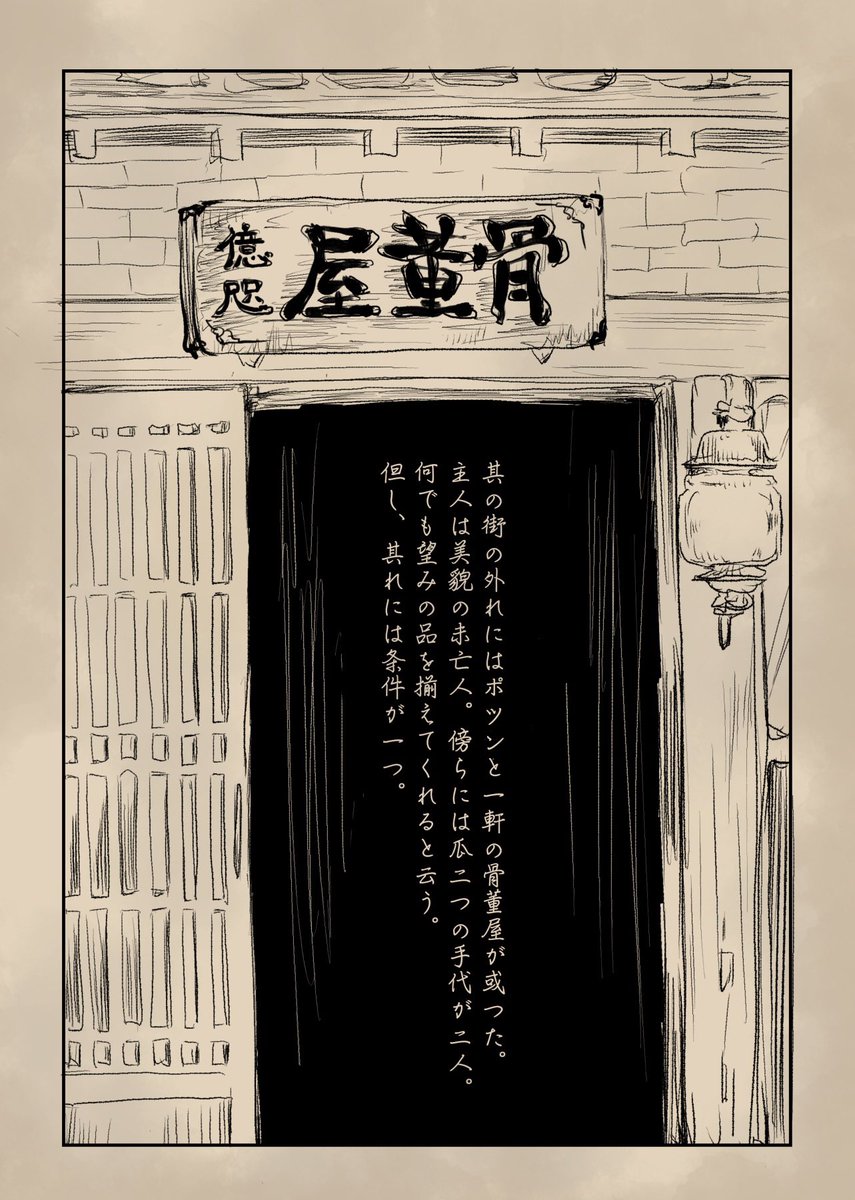 骨董屋
億咫
其の街の外れにはポツンと一軒の骨董屋が或つた。
主人は美貌の未亡人。傍らには瓜二つの手代が二人。
何でも望みの品を揃えてくれると云う。
但し、其れには条件が一つ。